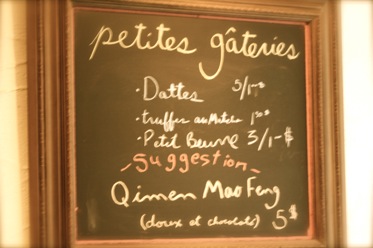 petites gâteries
· Dattes 5/1-$
· truffes au Matcha 1$
· Petit Beurre 3/1-$
-Suggestion-
Qimen Mao Feng
(doux et chocolaté) 5$